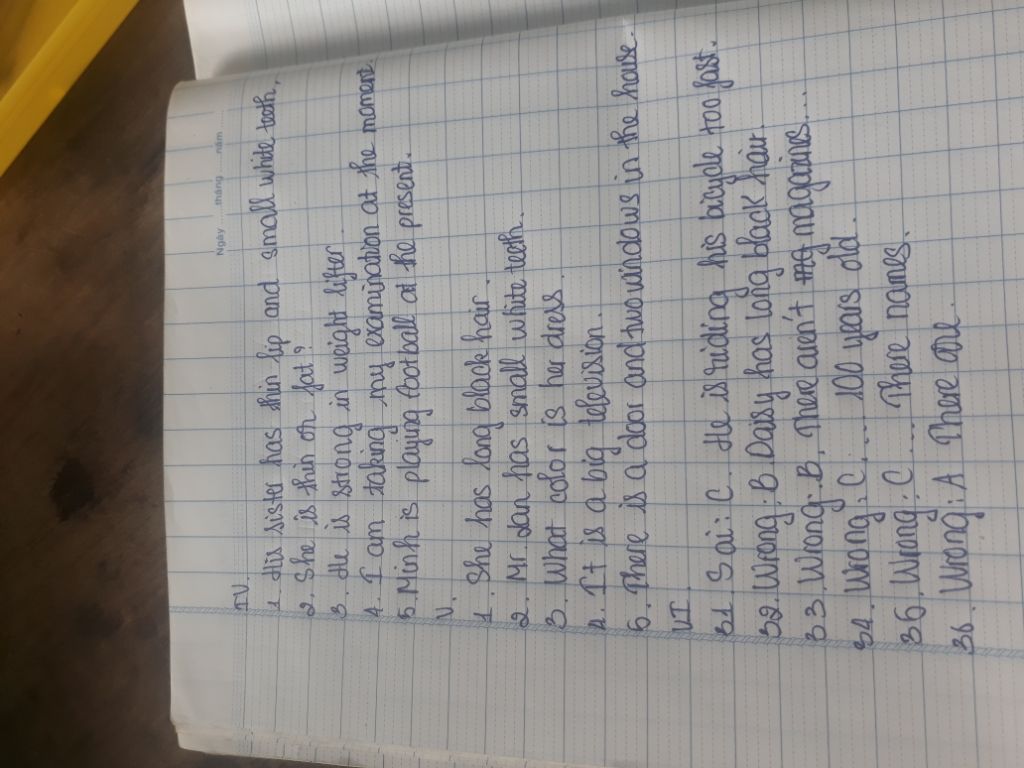 Ngày ...... tháng ...... năm ......
IV.
1. His sister has thin lip and small white teeth.
2. She is thin or fat?
3. He is strong in weight lifter.
4. I am taking my examination at the moment.
5. Minh is playing football at the present.
V.
1. She has long black hair.
2. Mr. Lan has small white teeth.
3. What color is her dress.
4. It is a big television.
5. There is a door and two windows in the house.
VI.
31. Sai: C. He is riding his bicycle too fast.
32. Wrong: B. Daisy has long black hair.
33. Wrong: B. There aren't mag magazines...
34. Wrong: C.... 100 years old.
35. Wrong: C .... There names.
36. Wrong: A There are.